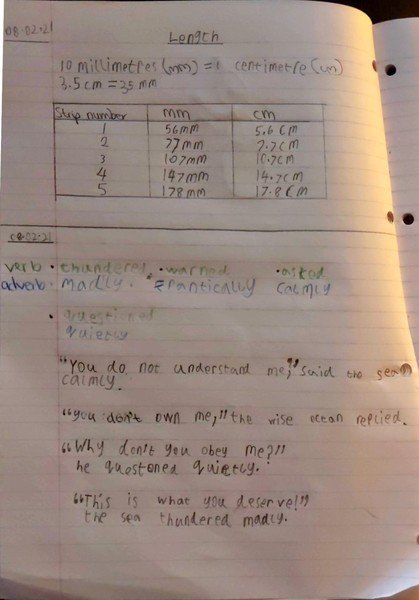 08.02.21
Length
10 millimetres (mm) = 1 centimetre (cm)
3.5 cm = 35 mm
Strip number mm cm
1 56mm 5.6 cm
2 77mm 7.7cm
3 107mm 10.7cm
4 147mm 14.7cm
5 178mm 17.8cm
08.02.21
verb • thundered • warned • asked
adverb • madly. frantically calmly
• questioned
quietly
"You do not understand me," said the sea
calmly.
"you don't own me," the wise ocean replied.
"Why don't you obey me?"
he questoned quietly.
"This is what you deserve!"
the sea thundered madly.